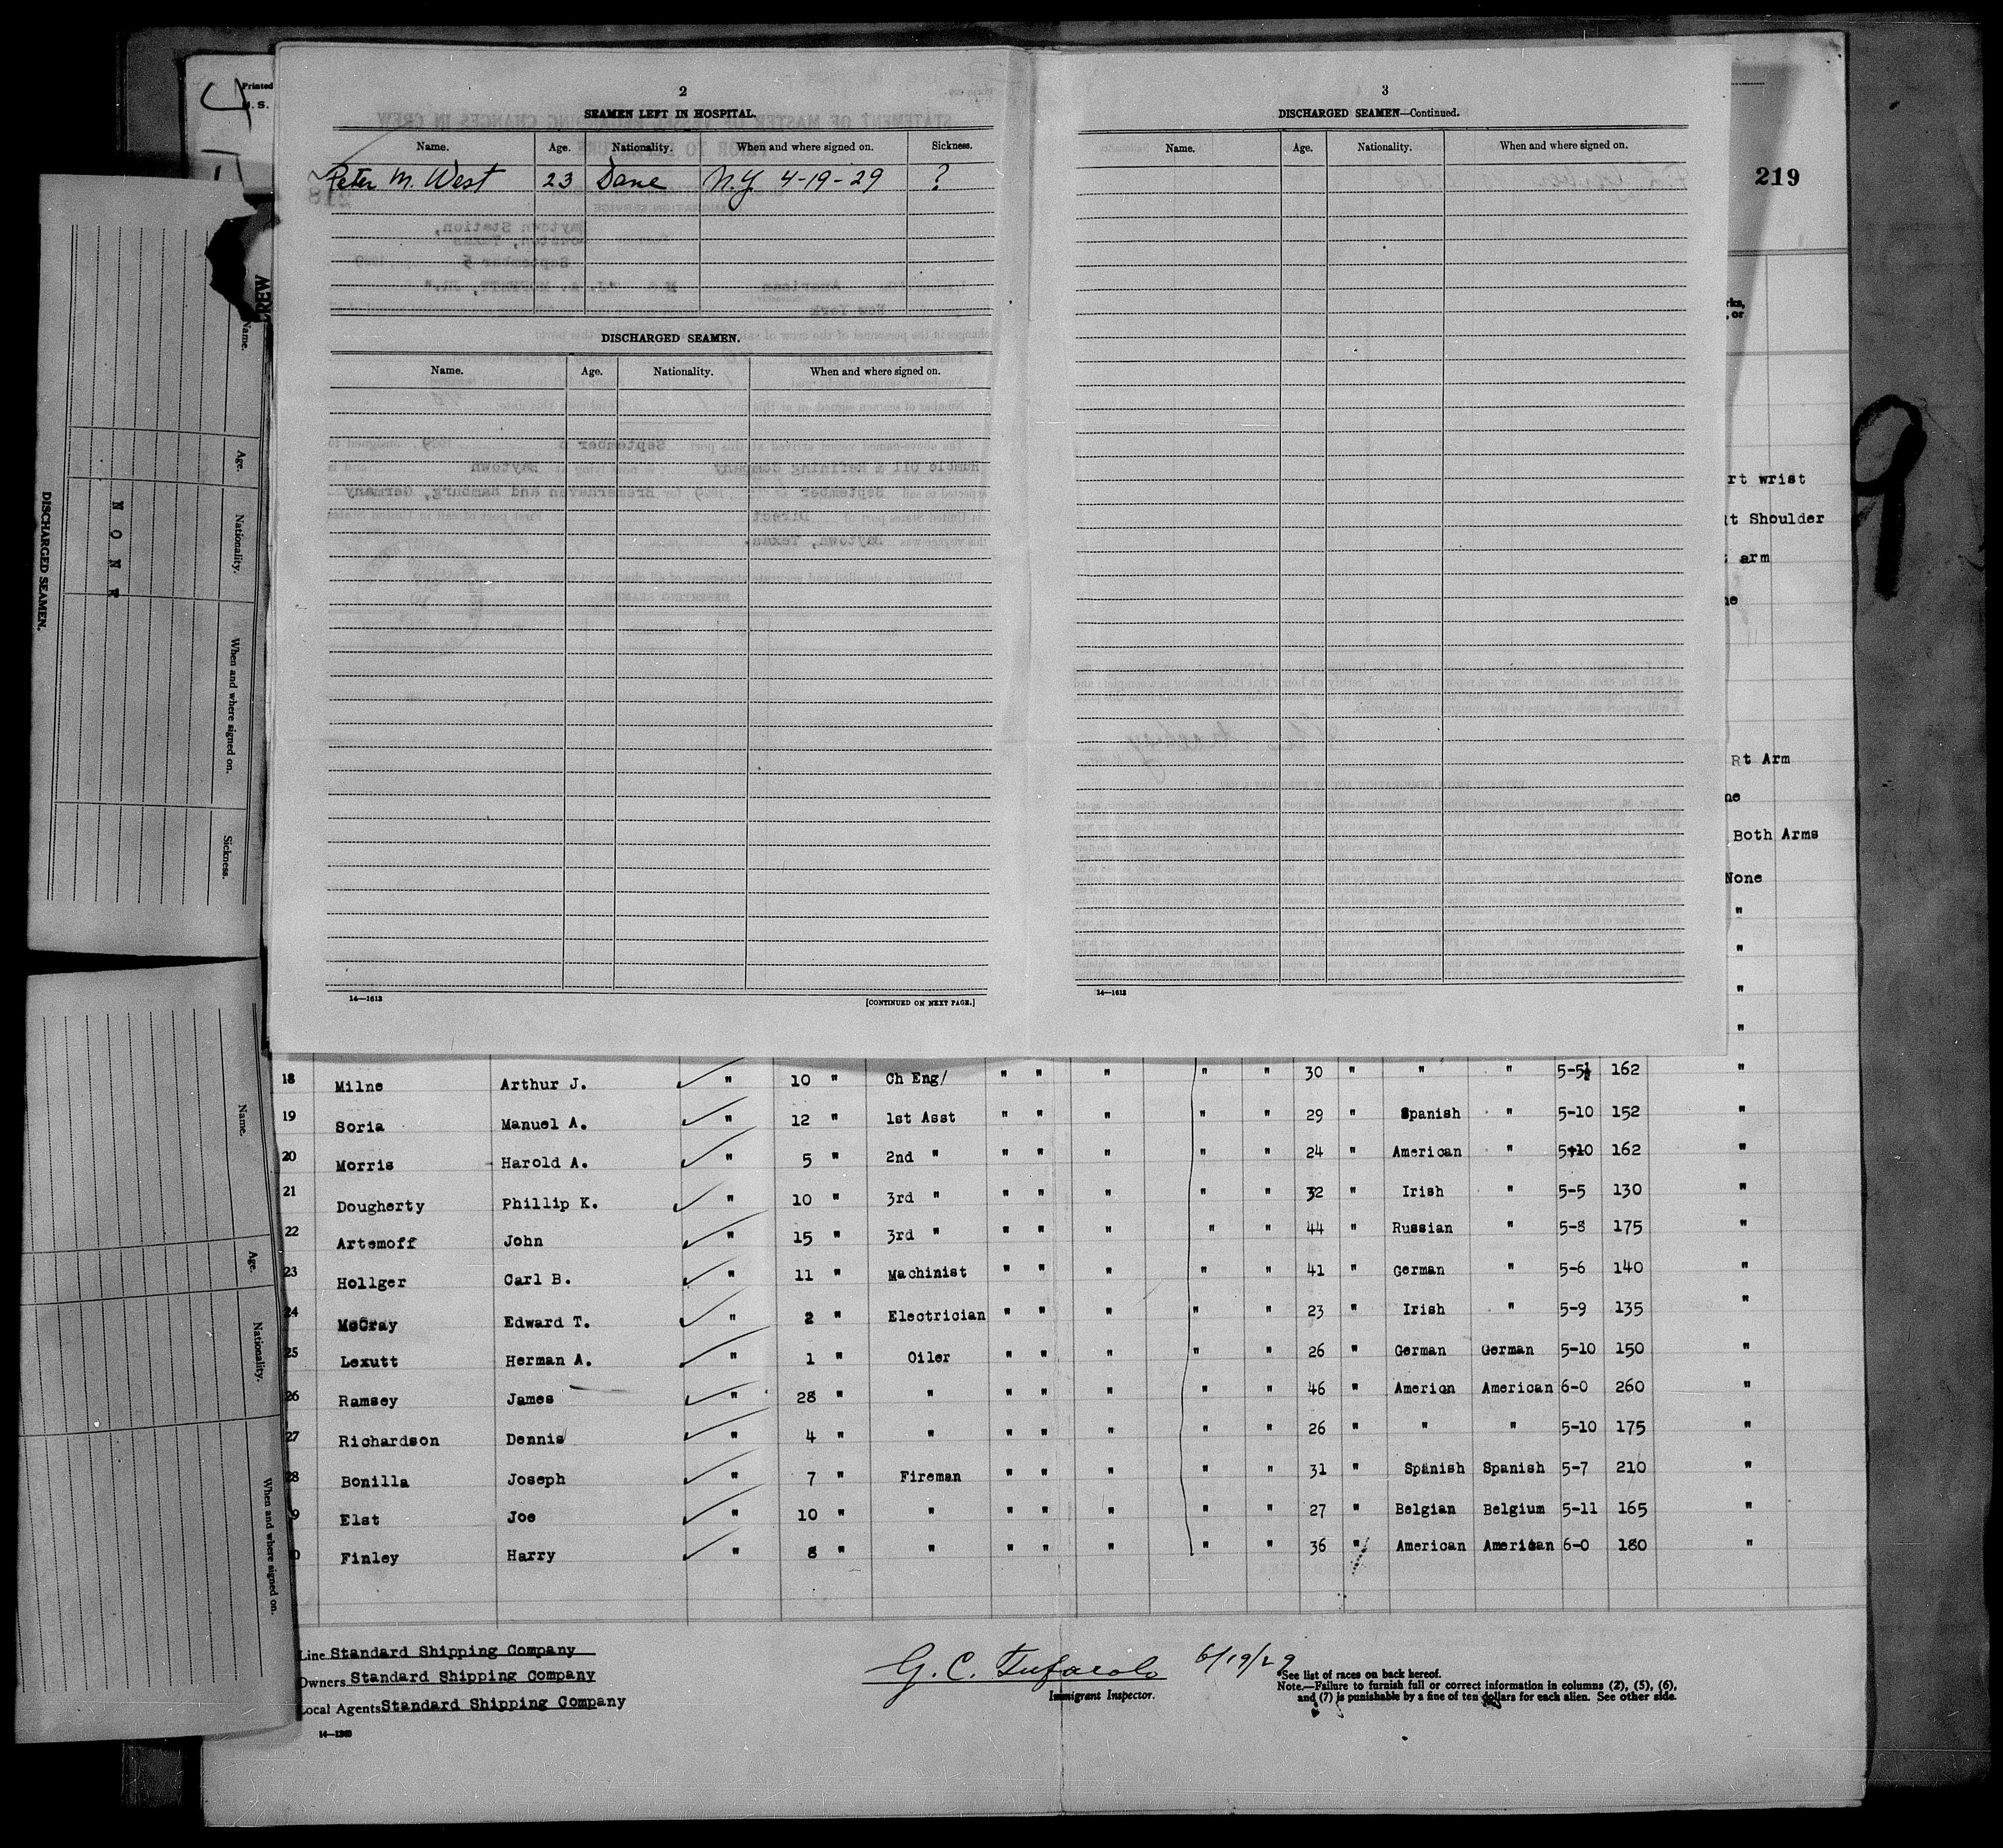 Printed
U. S.
2
SEAMEN LEFT IN HOSPITAL.
Name. Age. Nationality. When and where signed on. Sickness.
Peter M. West 23 Dane N.Y. 4-19-29 ?
DISCHARGED SEAMEN.
Name. Age. Nationality. When and where signed on.
14—1613 [CONTINUED ON NEXT PAGE.]
3
DISCHARGED SEAMEN—Continued.
Name. Age. Nationality. When and where signed on.
14—1613
219
wrist
Shoulder
arm
Rt Arm
Both Arms
None
"
"
"
"
DISCHARGED SEAMEN.
NONE
Name. Age. Nationality. When and where signed on. Sickness.
Name. Age. Nationality. When and where signed on.
18 Milne Arthur J. " 10 " Ch Eng/ " " " " " 30 " " " 5-5½ 162 "
19 Soria Manuel A. " 12 " 1st Asst " " " " " 29 " Spanish " 5-10 152 "
20 Morris Harold A. " 5 " 2nd " " " " " " 24 " American " 5-10 162 "
21 Dougherty Phillip K. " 10 " 3rd " " " " " " 32 " Irish " 5-5 130 "
22 Artemoff John " 15 " 3rd " " " " " " 44 " Russian " 5-8 175 "
23 Hollger Carl B. " 11 " Machinist " " " " " 41 " German " 5-6 140 "
24 McCray Edward T. " 2 " Electrician " " " " " 23 " Irish " 5-9 135 "
25 Lexutt Herman A. " 1 " Oiler " " " " " 26 " German German 5-10 150 "
26 Ramsey James " 28 " " " " " " " 46 " Americn American 6-0 260 "
27 Richardson Dennis " 4 " " " " " " " 26 " " " 5-10 175 "
28 Bonilla Joseph " 7 " Fireman " " " " " 31 " Spanish Spanish 5-7 210 "
9 Elst Joe " 10 " " " " " " " 27 " Belgian Belgium 5-11 165 "
0 Finley Harry " 8 " " " " " " " 36 " American American 6-0 180 "
Line Standard Shipping Company
Owners Standard Shipping Company
Local Agents Standard Shipping Company
14—1240
G. C. Tufarolo 6/19/29
Immigrant Inspector.
*See list of races on back hereof.
Note.—Failure to furnish full or correct information in columns (2), (5), (6),
and (7) is punishable by a fine of ten dollars for each alien. See other side.